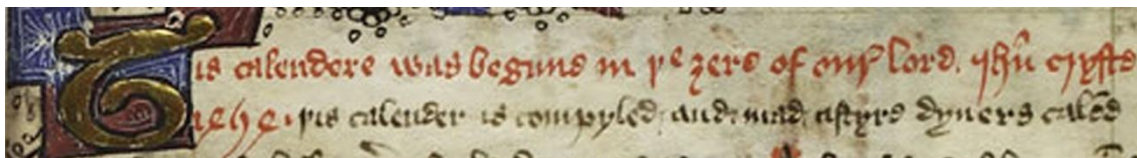 Tis calendere was begune in þe ȝere of oure lord. ihũ cryste
þis calender is compyled. and. mad. aftyre dyuers calẽd